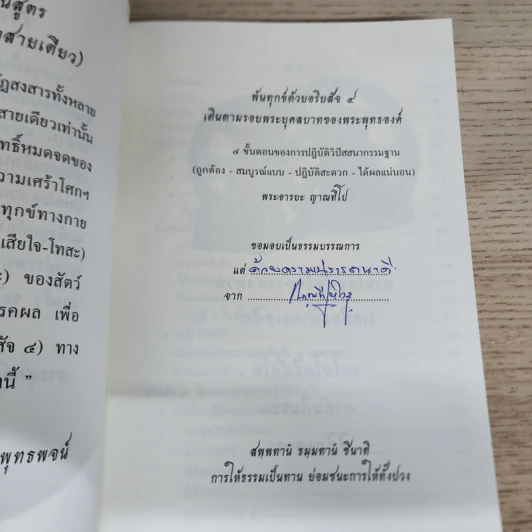 นสูตร
สายเดียว)
ัฏสงสารทั้งหลาย
สายเดียวเท่านั้น
ทธิ์หมดจดของ
วามเศร้าโศกฯ
ทุกข์ทางกาย
เสียใจ-โทสะ)
ะ) ของสัตว์
รคผล เพื่อ
สัจ ๔) ทาง
นี้ ”
พุทธพจน์
พ้นทุกข์ด้วยอริยสัจ ๔
เดินตามรอยพระยุคลบาทของพระพุทธองค์
๔ ขั้นตอนของการปฏิบัติวิปัสสนากรรมฐาน
(ถูกต้อง - สมบูรณ์แบบ - ปฏิบัติสะดวก - ได้ผลแน่นอน)
พระอารยะ ญาณทีโป
ขอมอบเป็นธรรมบรรณการ
แด่ ด้วยความปรารถนาดี
จาก
สพฺพทานํ ธมฺมทานํ ชินาติ
การให้ธรรมเป็นทาน ย่อมชนะการให้ทั้งปวง